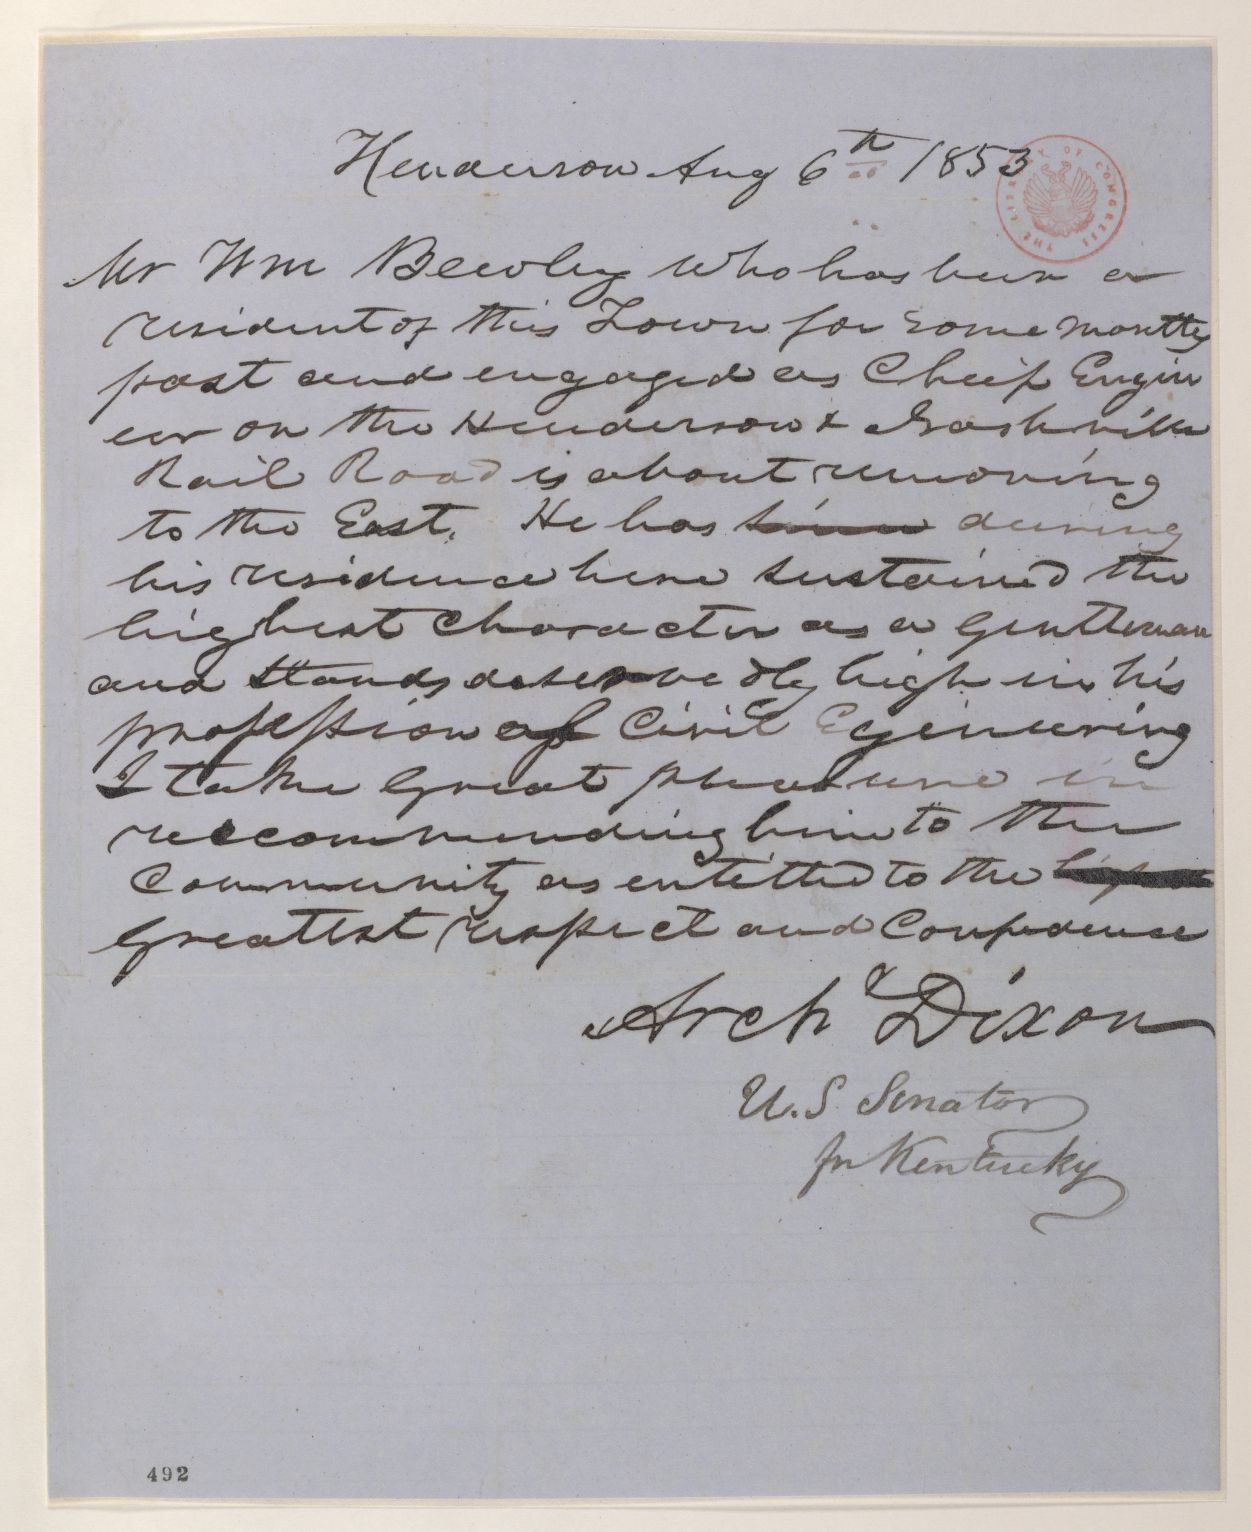 Henderson Aug 6th 1853
THE LIBRARY OF CONGRESS
Mr Wm Bewley who has been a
resident of this Town for some months
past and engaged as Cheif Engin
eer on the Henderson & Nashville
Rail Road is about removing
to the East. He has since during
his residence here sustained the
highest character as a gentleman
and stands deservedly high in his
profession of Civil Egineering
I take great pleasure in
reccommending him to the
Community as entitled to the
greattest respect and Confidence
Archd Dixon
U.S Senator
fr Kentucky
492